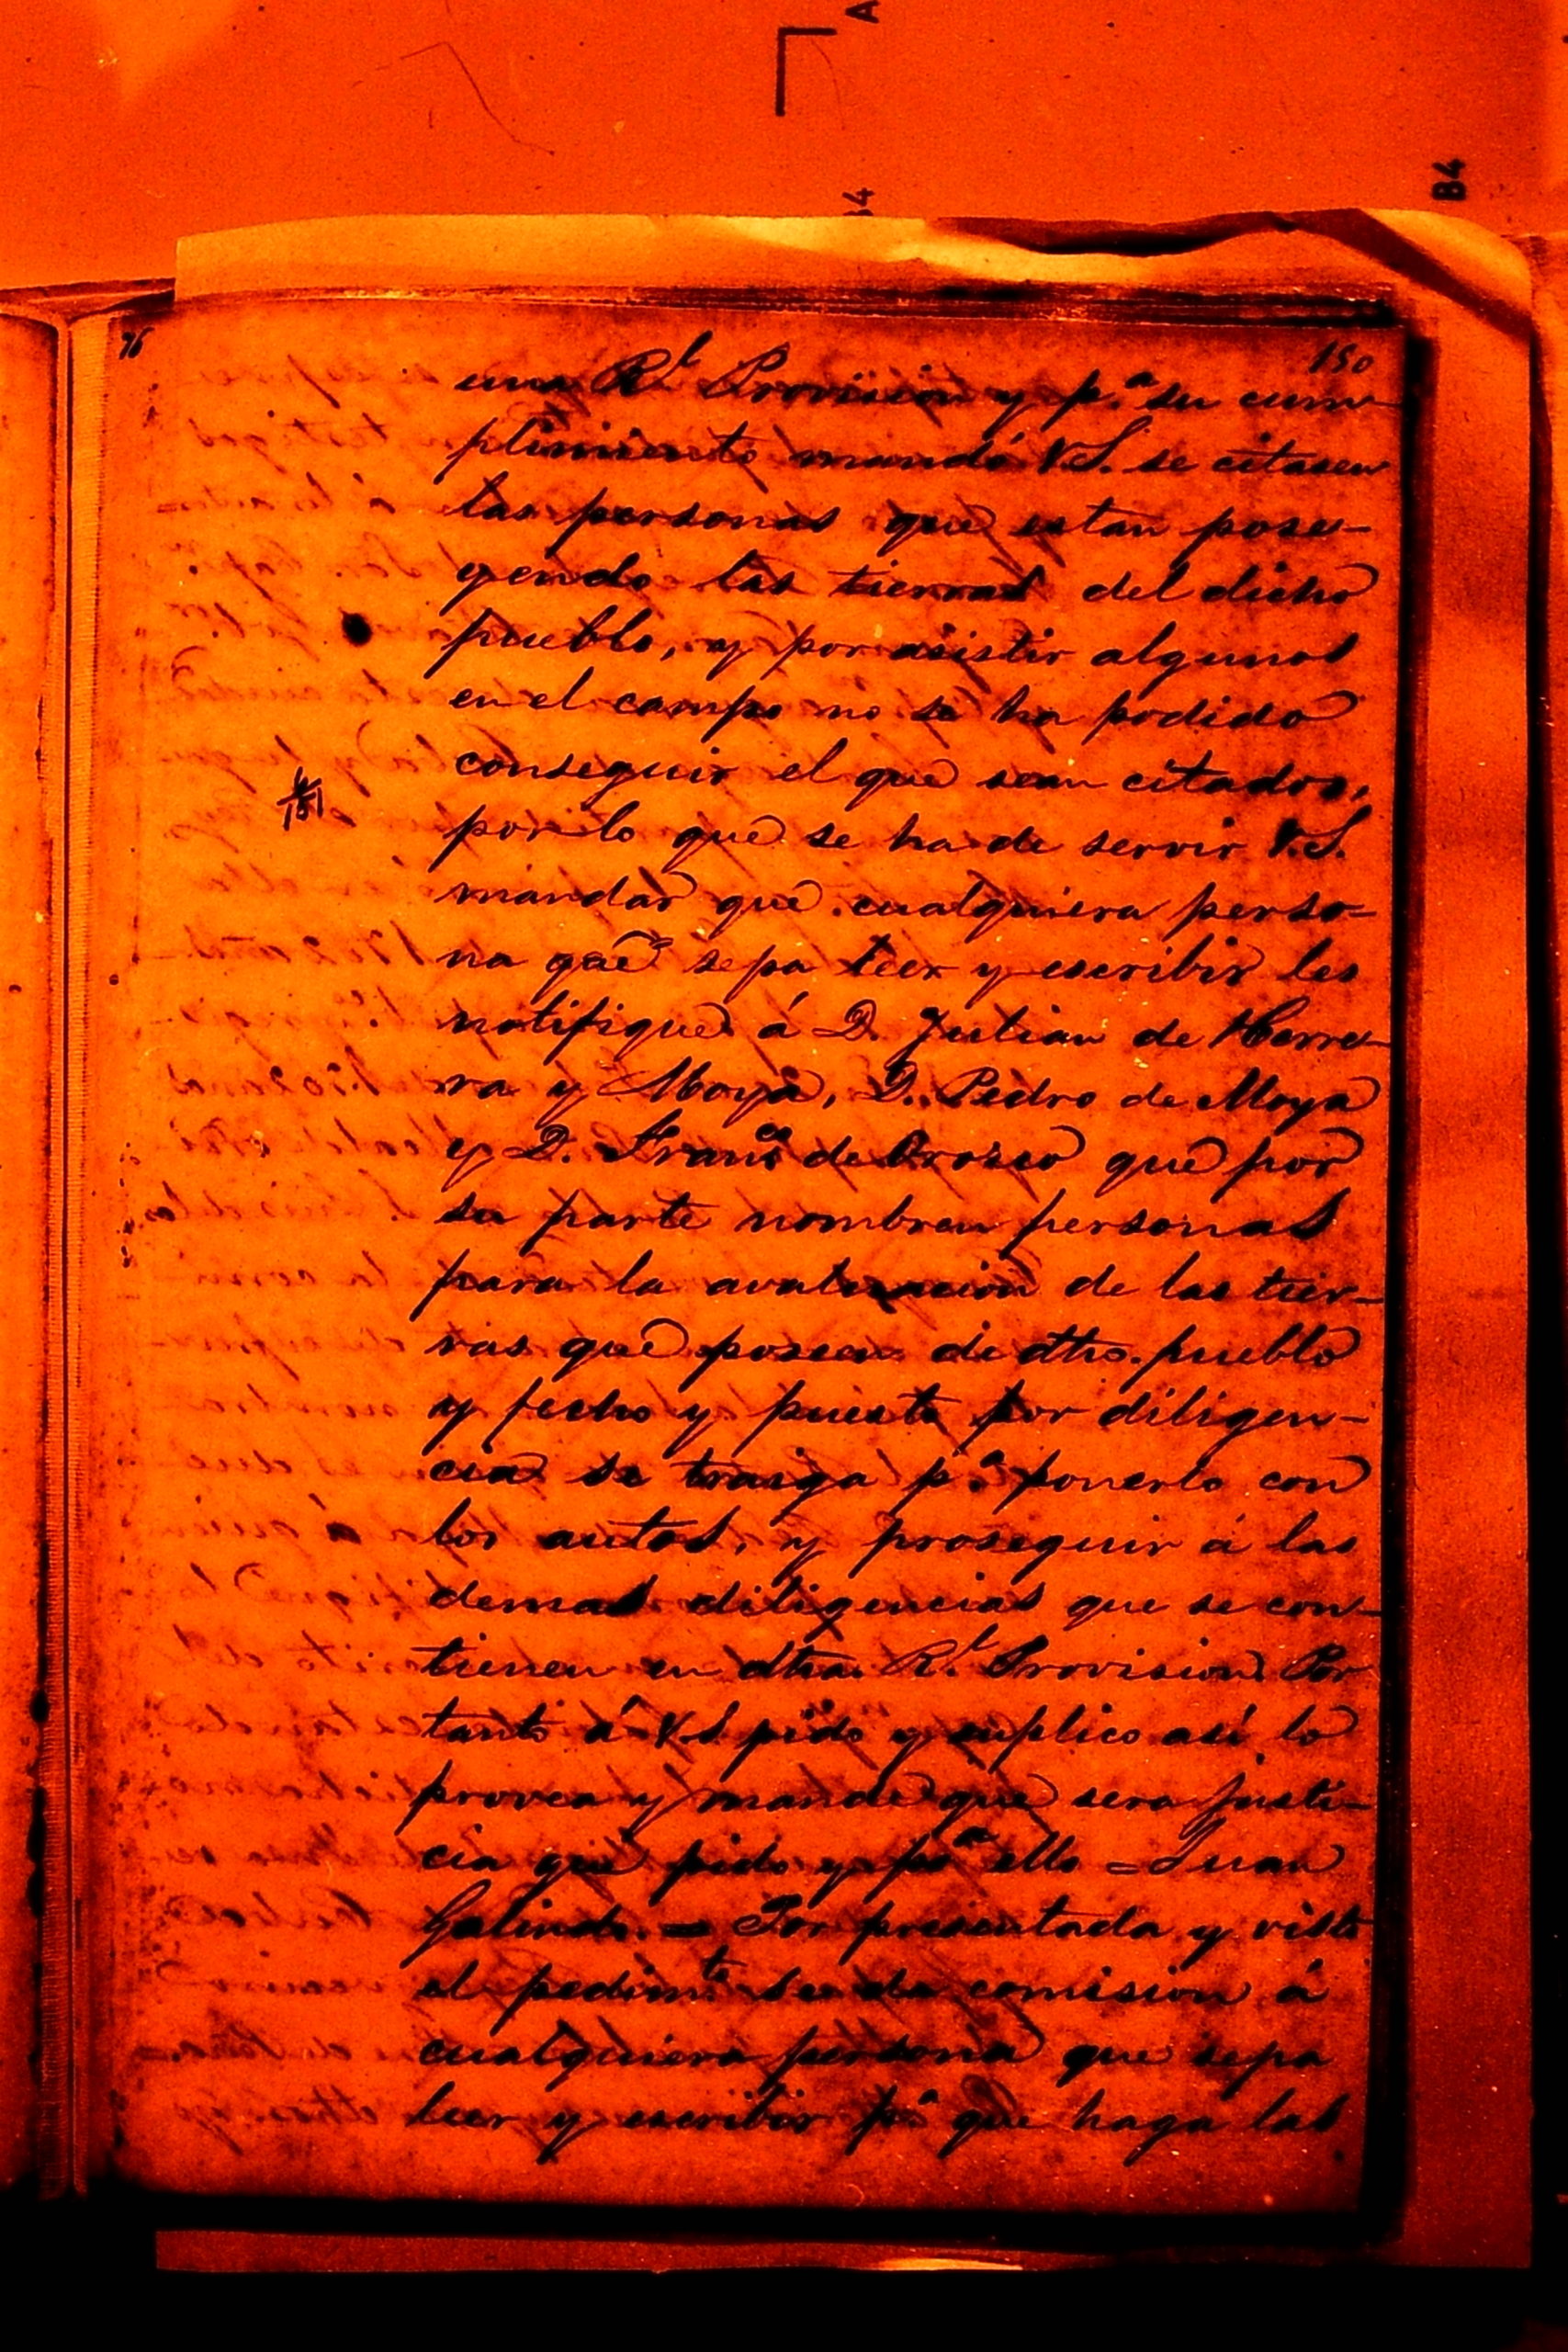 A
B4
34
76
150
una R.l Provision y p.a su cum-
plimiento mandó V.S. se citasen
las personas que estan pose-
yendo las tierras del dicho
pueblo, y por asistir algunos
en el campo no se ha podido
conseguir el que sean citados,
151
por lo que se ha de servir V.S.
mandar que cualquiera perso-
na que sepa leer y escribir les
notifique á D. Julian de Herre-
ra y Moya, D. Pedro de Moya
y D. Fran.co de Orozco que por
su parte nombren personas
para la avaluacion de las tier-
ras que poseen de dho. pueblo
y fecho y puesto por diligen-
cia se traiga p.a ponerlo con
los autos, y proseguir á las
demas diligencias que se con-
tienen en dha. R.l Provision. Por
tanto á V.S. pido y suplico así lo
provea y mande que sera justi-
cia que pido y p.a ello = Juan
Galindo. = Por presentada y visto
el pedim.to se da comision á
cualquiera persona que sepa
leer y escribir p.a que haga las